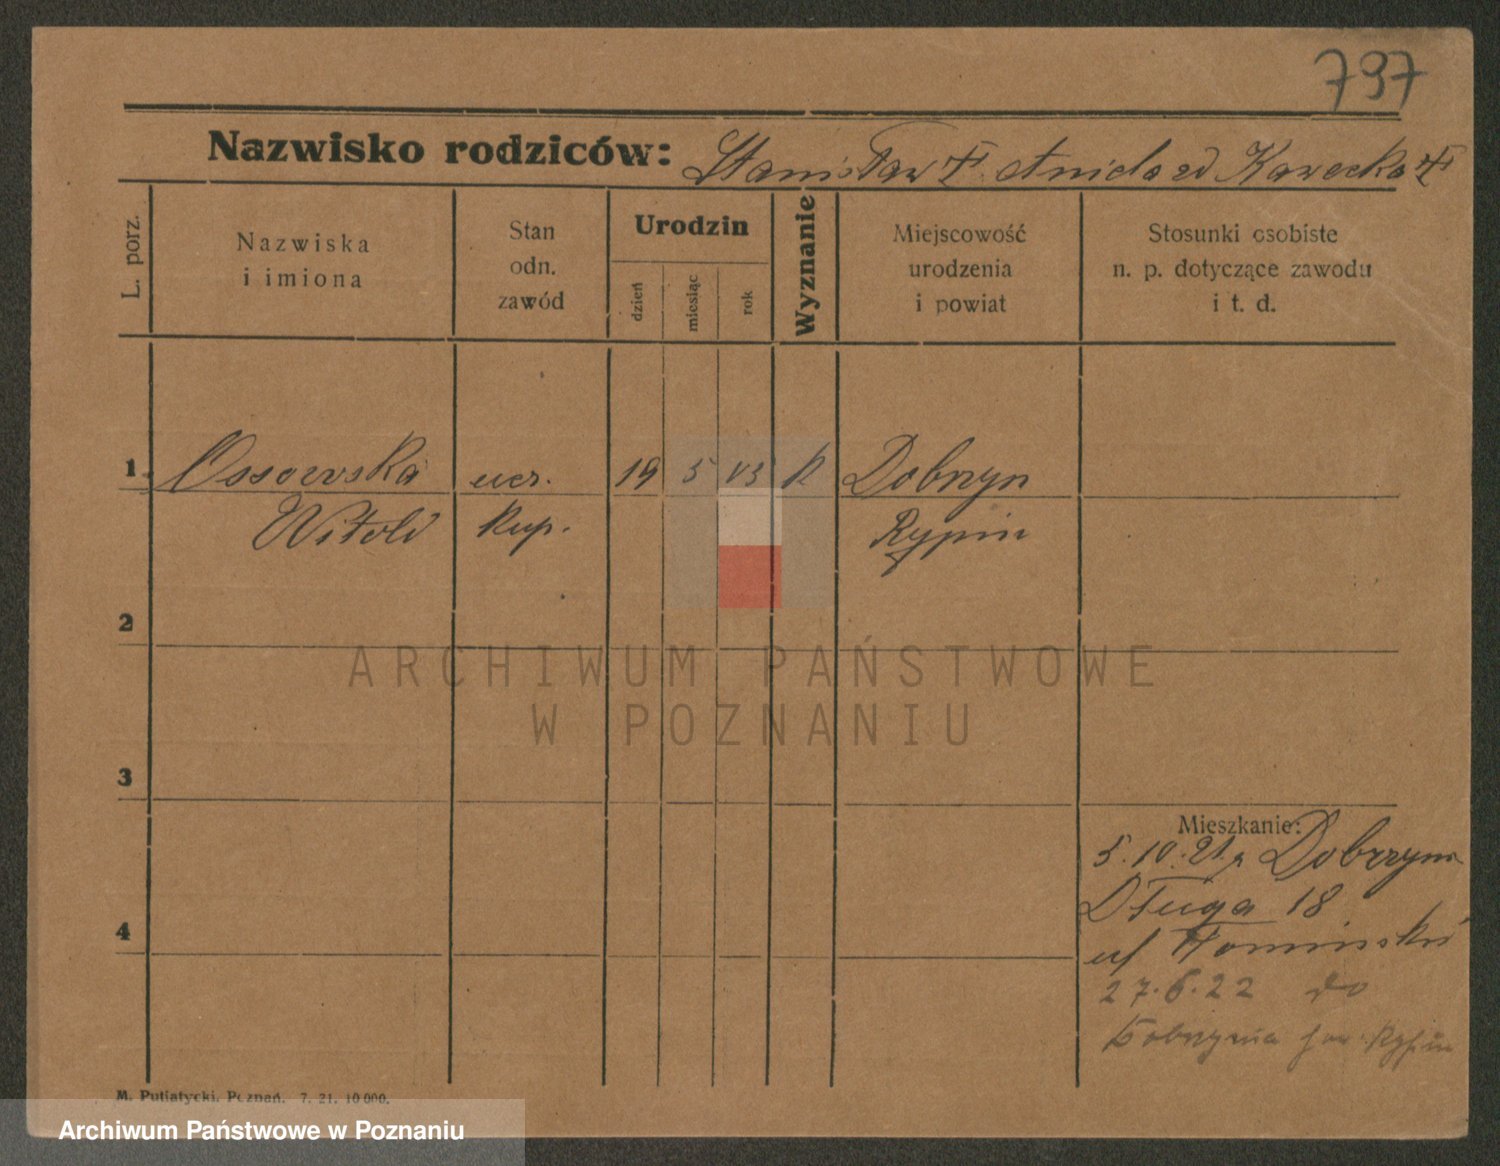 797
Nazwisko rodziców: Stanisław Kawecka
L. porz.
Nazwiska
i imiona
Stan
odn.
zawód
Urodzin
dzień
miesiąc
rok
Wyznanie
Miejscowość
urodzenia
i powiat
Stosunki osobiste
n. p. dotyczące zawodu
i t. d.
1. Ossowska ucz. 19 5 03 K Dobrzyn
Witold kup. Rypin
2
3
4
Mieszkanie:
5.10.21. Dobrzyn
Długa 18
27.6.22 do
Dobrzynia pow. Rypin
M. Putiatycki, Poznań. 7. 21. 10 000.
ARCHIWUM PAŃSTWOWE
W POZNANIU
Archiwum Państwowe w Poznaniu